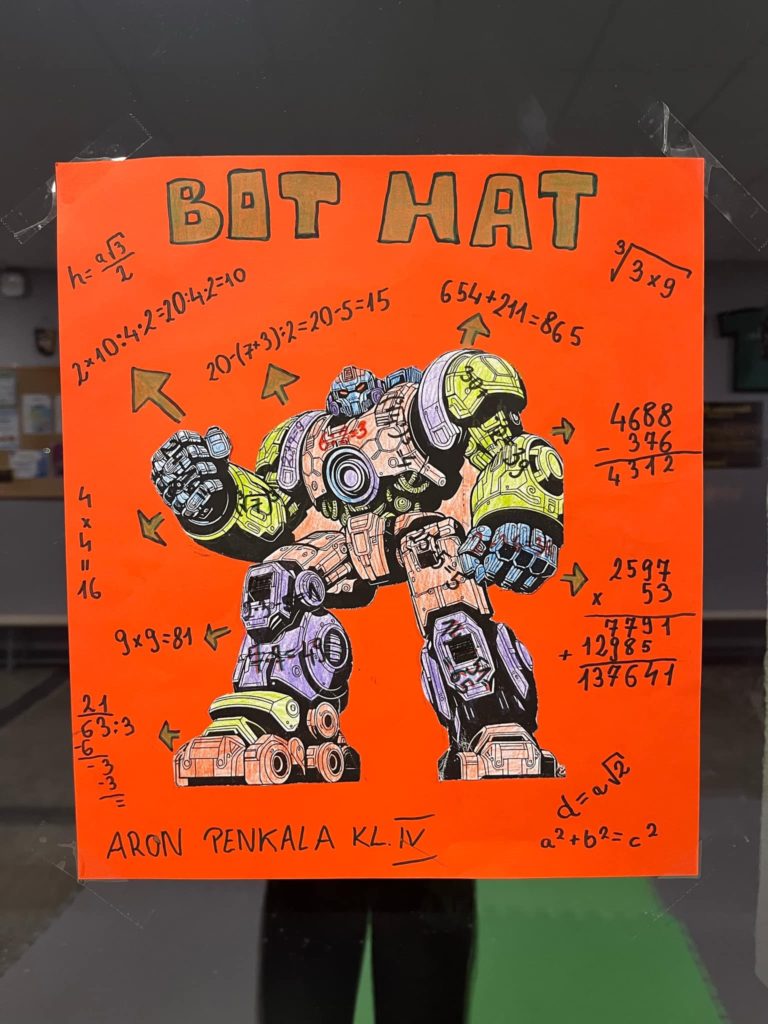 BOT MAT
h = a√3/2
2×10:4·2=20:4·2=10
20-(7+3):2=20-5=15
654+211=865
³√3×9
4688
- 376
4312
4
×
4
=
16
2597
× 53
7791
+ 12985
137641
9×9=81
21
63:3
6
-3
-3
=
d = a√2
a²+b²=c²
ARON PENKALA KL. IV